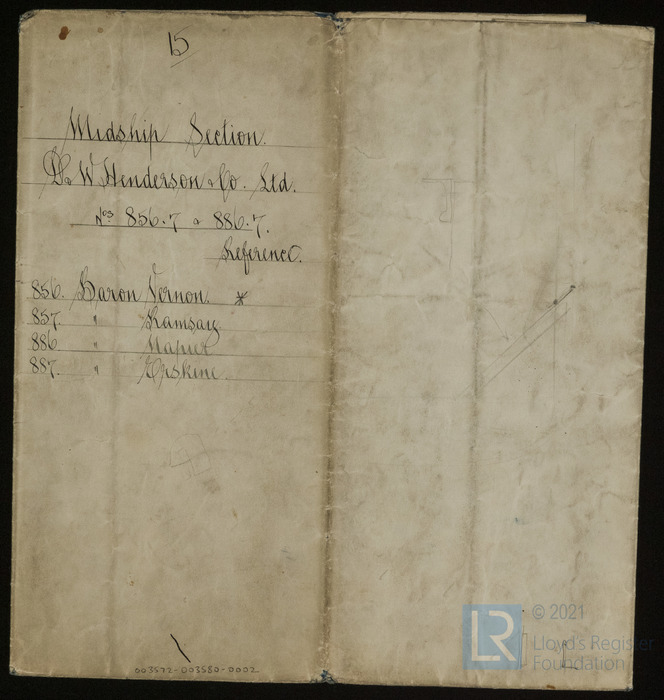 15
Midship Section.
D. & W. Henderson & Co. Ltd.
Nos 856.7 & 886.7.
Reference.
856. Baron Vernon. *
857. " Ramsay.
886 " Napier
887. " Erskine
003522-003580-0002
© 2021
LR
Lloyd's Register
Foundation